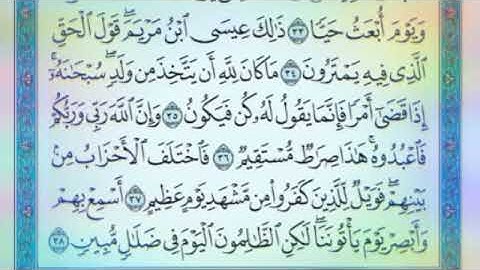 وَيَوْمَ أُبْعَثُ حَيًّا ٣٣ ذَٰلِكَ عِيسَى ابْنُ مَرْيَمَ ۚ قَوْلَ الْحَقِّ
الَّذِي فِيهِ يَمْتَرُونَ ٣٤ مَا كَانَ لِلَّهِ أَن يَتَّخِذَ مِن وَلَدٍ ۖ سُبْحَانَهُ ۚ
إِذَا قَضَىٰ أَمْرًا فَإِنَّمَا يَقُولُ لَهُ كُن فَيَكُونُ ٣٥ وَإِنَّ اللَّهَ رَبِّي وَرَبُّكُمْ
فَاعْبُدُوهُ ۚ هَٰذَا صِرَاطٌ مُّسْتَقِيمٌ ٣٦ فَاخْتَلَفَ الْأَحْزَابُ مِن
بَيْنِهِمْ ۖ فَوَيْلٌ لِّلَّذِينَ كَفَرُوا مِن مَّشْهَدِ يَوْمٍ عَظِيمٍ ٣٧ أَسْمِعْ بِهِمْ
وَأَبْصِرْ يَوْمَ يَأْتُونَنَا ۖ لَٰكِنِ الظَّالِمُونَ الْيَوْمَ فِي ضَلَالٍ مُّبِينٍ ٣٨